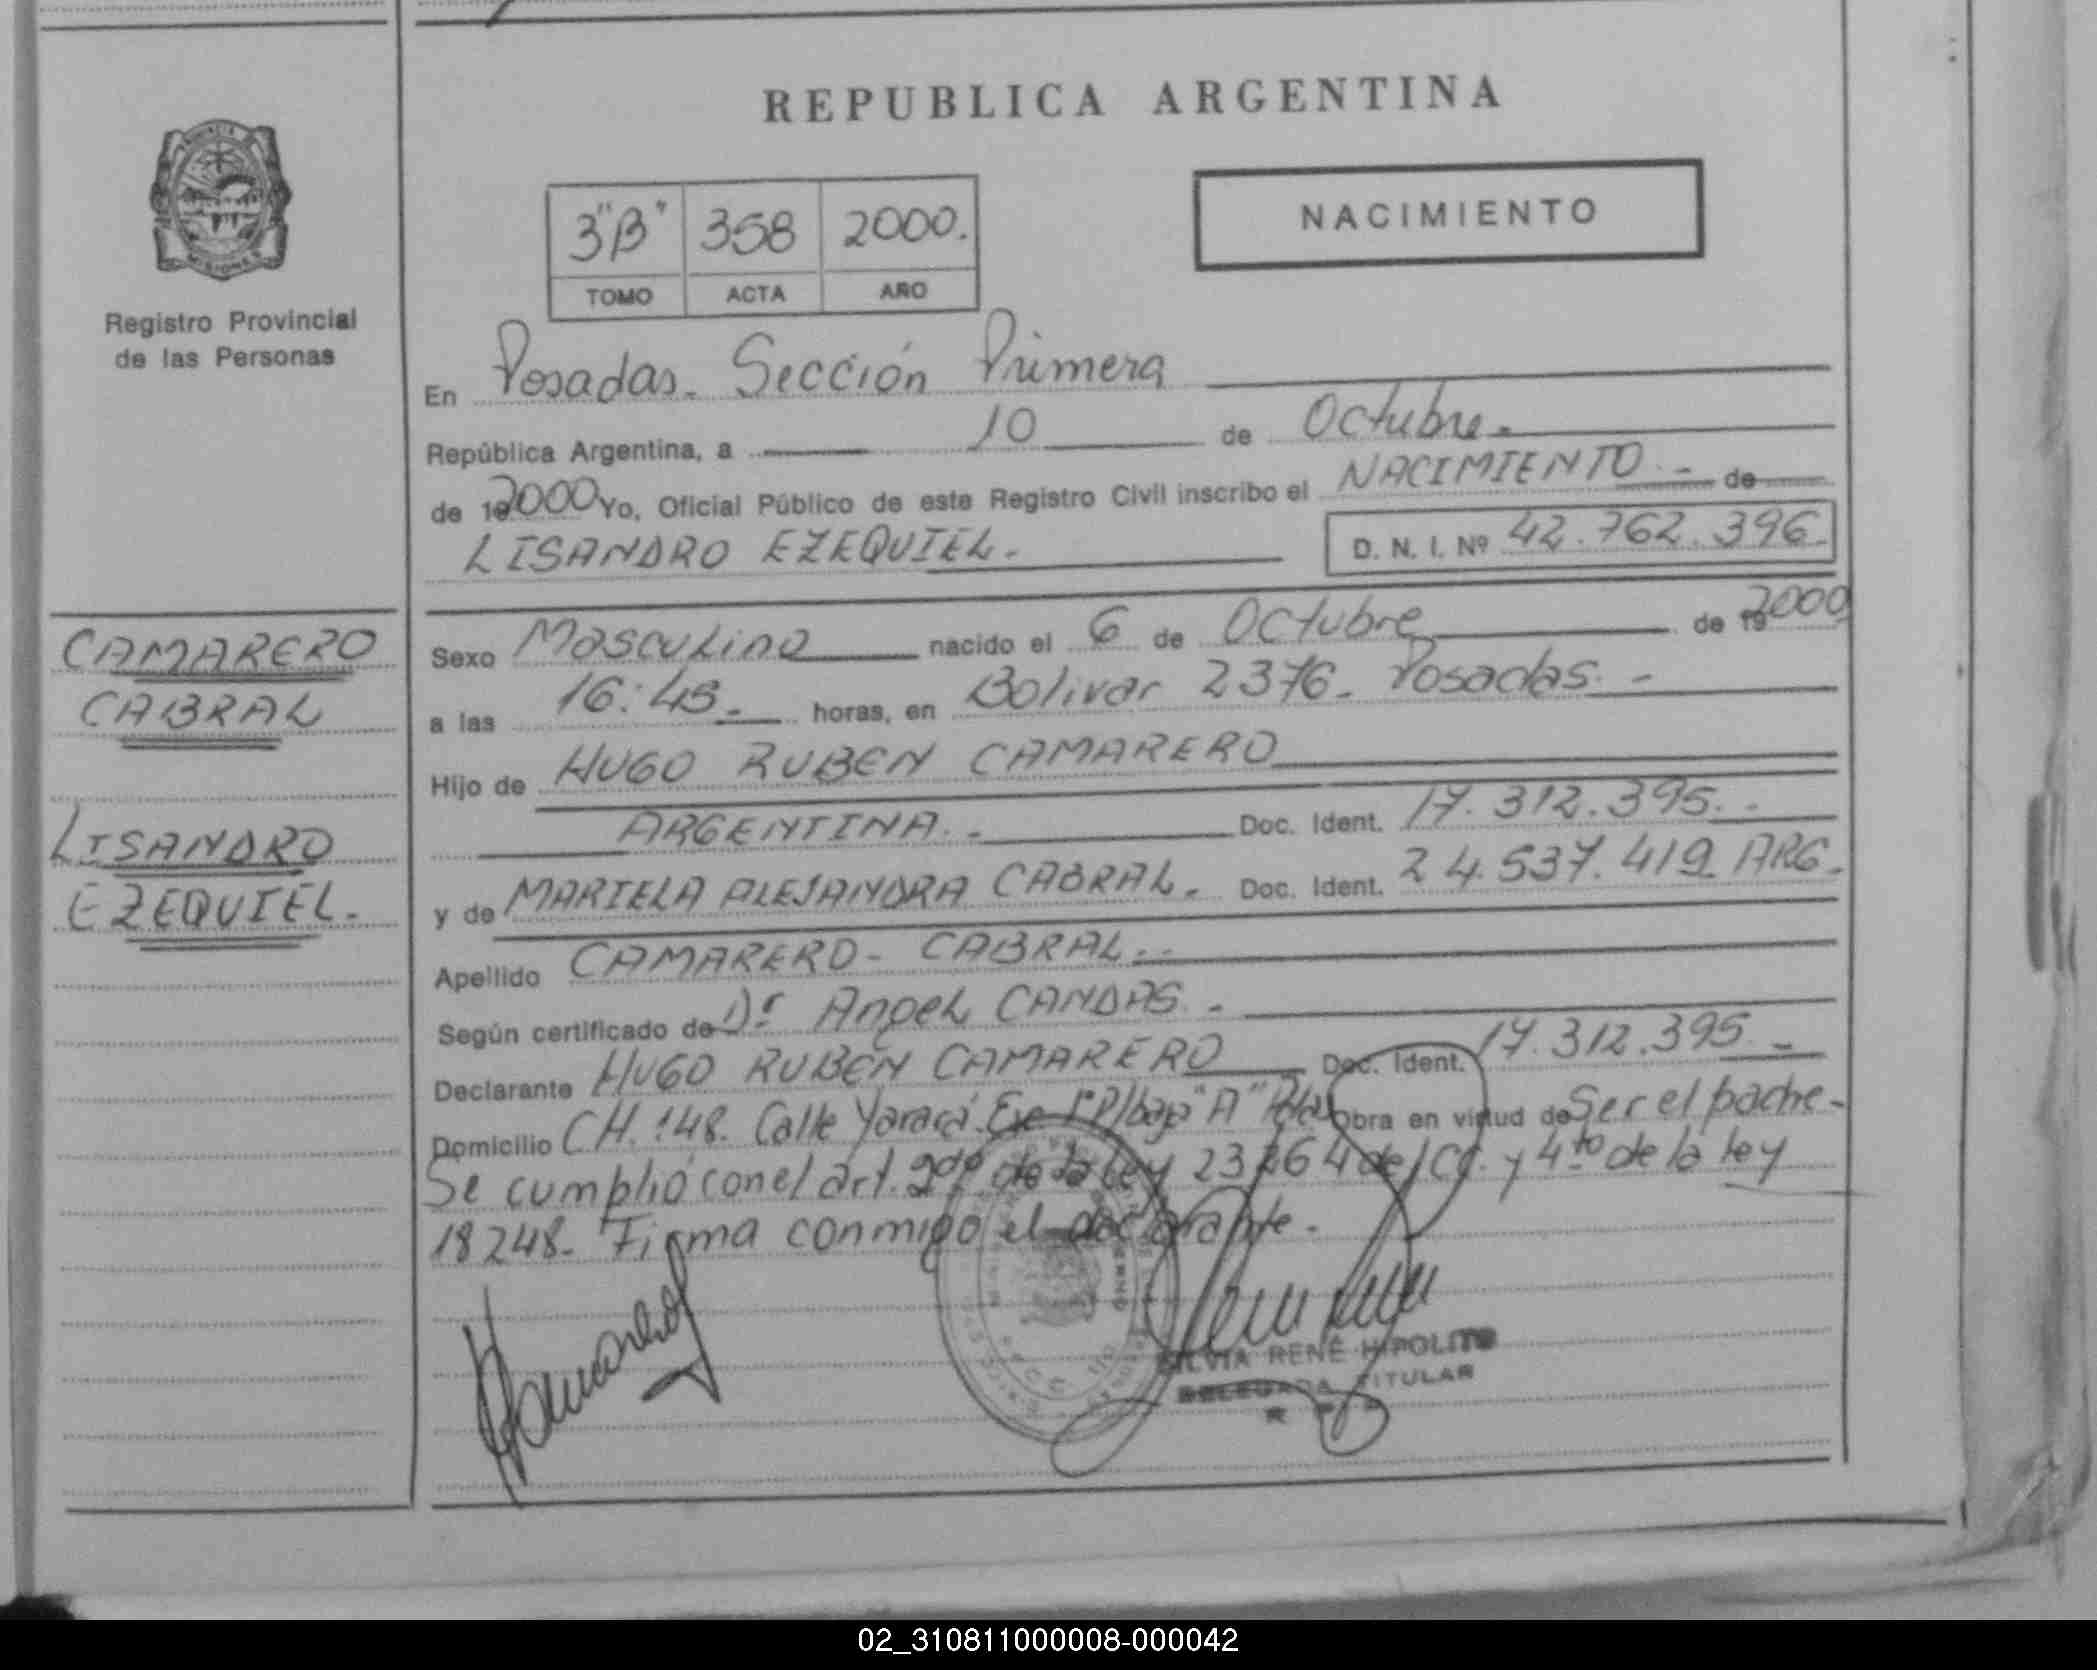 REPUBLICA ARGENTINA
3"B" 358 2000.
TOMO ACTA AÑO
NACIMIENTO
MISIONES
Registro Provincial
de las Personas
En Posadas. Sección Primera
República Argentina, a 10 de Octubre.
de 192000 Yo, Oficial Público de este Registro Civil inscribo el NACIMIENTO.- de
LISANDRO EZEQUIEL.
D. N. I. Nº 42.762.396.
CAMARERO
CABRAL
LISANDRO
EZEQUIEL.
Sexo Masculino nacido el 6 de Octubre de 192000
a las 16:45. horas, en Bolivar 2376. Posadas.-
Hijo de HUGO RUBEN CAMARERO
ARGENTINA.- Doc. Ident. 17.312.395.-
y de MARIELA ALEJANDRA CABRAL. Doc. Ident. 24.537.419 ARG.
Apellido CAMARERO- CABRAL.-
Según certificado de Dr Angel CANDAS.-
Declarante HUGO RUBEN CAMARERO Doc. Ident. 17.312.395.-
Domicilio CH. 148. Calle Yarará. P/baja "A" Pdas Obra en virtud de Ser el padre-
Se cumplió con el art. 2do de la ley 23264 del CC. y 4to de la ley
18248. Firma conmigo el declarante.
SILVIA RENÉ HIPOLITO
DELEGADA TITULAR
02_310811000008-000042